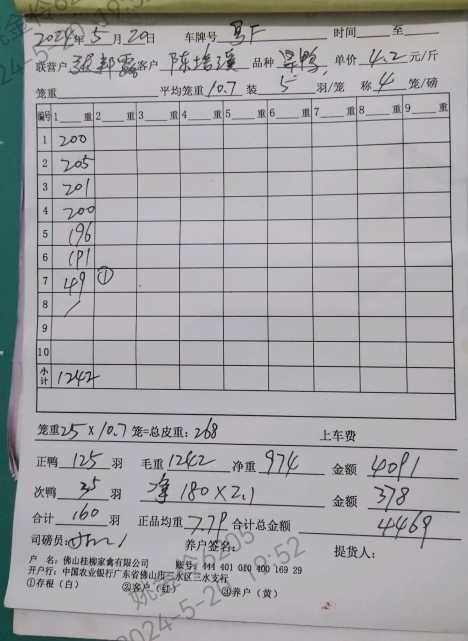 2024年5月20日 车牌号 时间 至
联营户 客户 陈培溪 品种 单价 4.2 元/斤
笼重 平均笼重 10.7 装 5 羽/笼 称 4 笼/磅
编号 1 重 2 重 3 重 4 重 5 重 6 重 7 重 8 重 9 重
1 200
2 205
3 201
4 200
5 196
6 191
7 49 ①
8
9
10
小计 1242
笼重 25 X 10.7 笼=总皮重: 268 上车费
正鸭 125 羽 毛重 1242 净重 974 金额 4091
次鸭 35 羽 净 180 X 2.1 金额 378
合计 160 羽 正品均重 7.79 合计总金额 4469
司磅员: 养户签名: 提货人:
户 名: 佛山桂柳家禽有限公司 账号: 444 401 010 400 169 29
开户行: 中国农业银行广东省佛山市三水区三水支行
①存根(白) ②客户(红) ③养户(黄)
2024-5-20 19:52